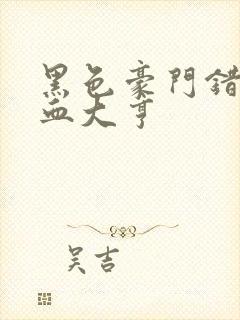 黑色豪門錯
血大亨
吴吉